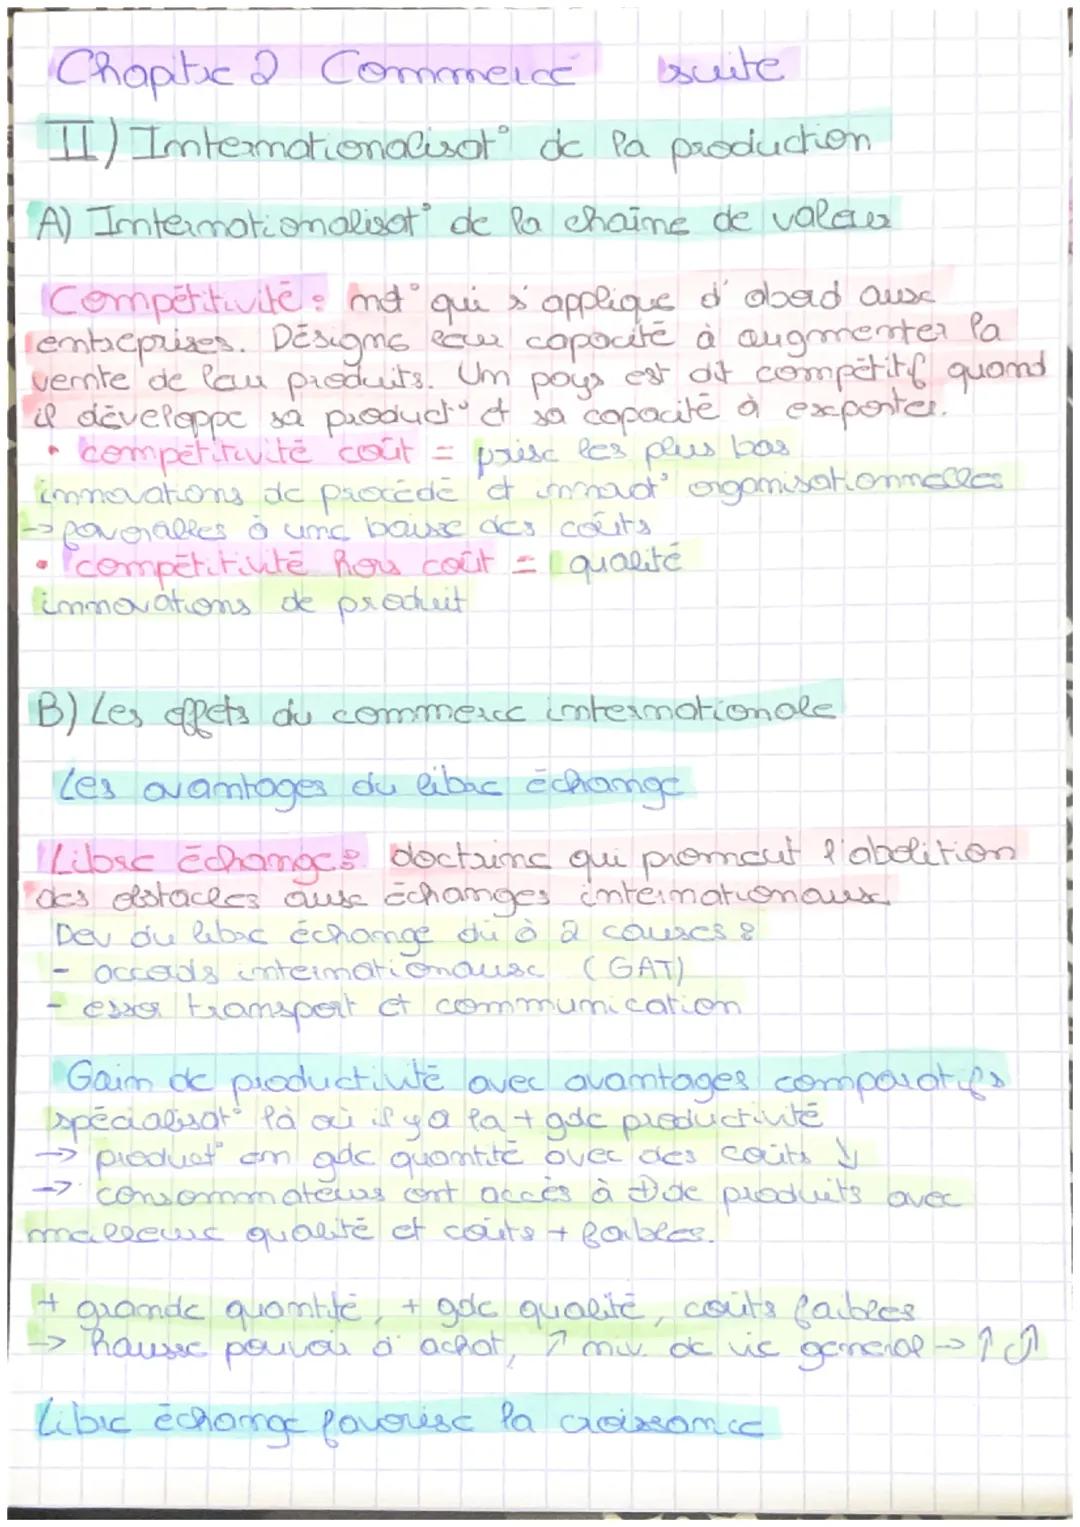 Chapitre 2 Commerce suite
II) Internationalisat° de la production
A) Internationalisat° de la chaîne de valeur
Compétitivité : not° qui s'applique d'abord aux
entreprises. Désigne leur capacité à augmenter la
vente de leur produits. Un pays est dit compétitif quand
il développe sa product° et sa capacité à exporter.
• compétitivité coût = prix les plus bas
innovations de procédé et innovat° organisationnelles
-> favorables à une baisse des coûts
• compétitivité hors coût = qualité
innovations de produit
B) Les effets du commerce internationale
Les avantages du libre échange
Libre échange : doctrine qui promeut l'abolition
des obstacles aux échanges internationaux
Dev du libre échange dû à 2 causes :
- accords internationaux (GAT)
- essor transport et communication
Gain de productivité avec avantages comparatifs
spécialisat° là où il y a la + gde productivité
-> product° en gde quantité avec des coûts ↓
-> consommateurs ont accès à + de produits avec
meilleure qualité et coûts + faibles.
+ grande quantité, + gde qualité, coûts faibles
-> hausse pouvoir d'achat, ↗ niv. de vie general -> ↑
Libre échange favorise la croissance